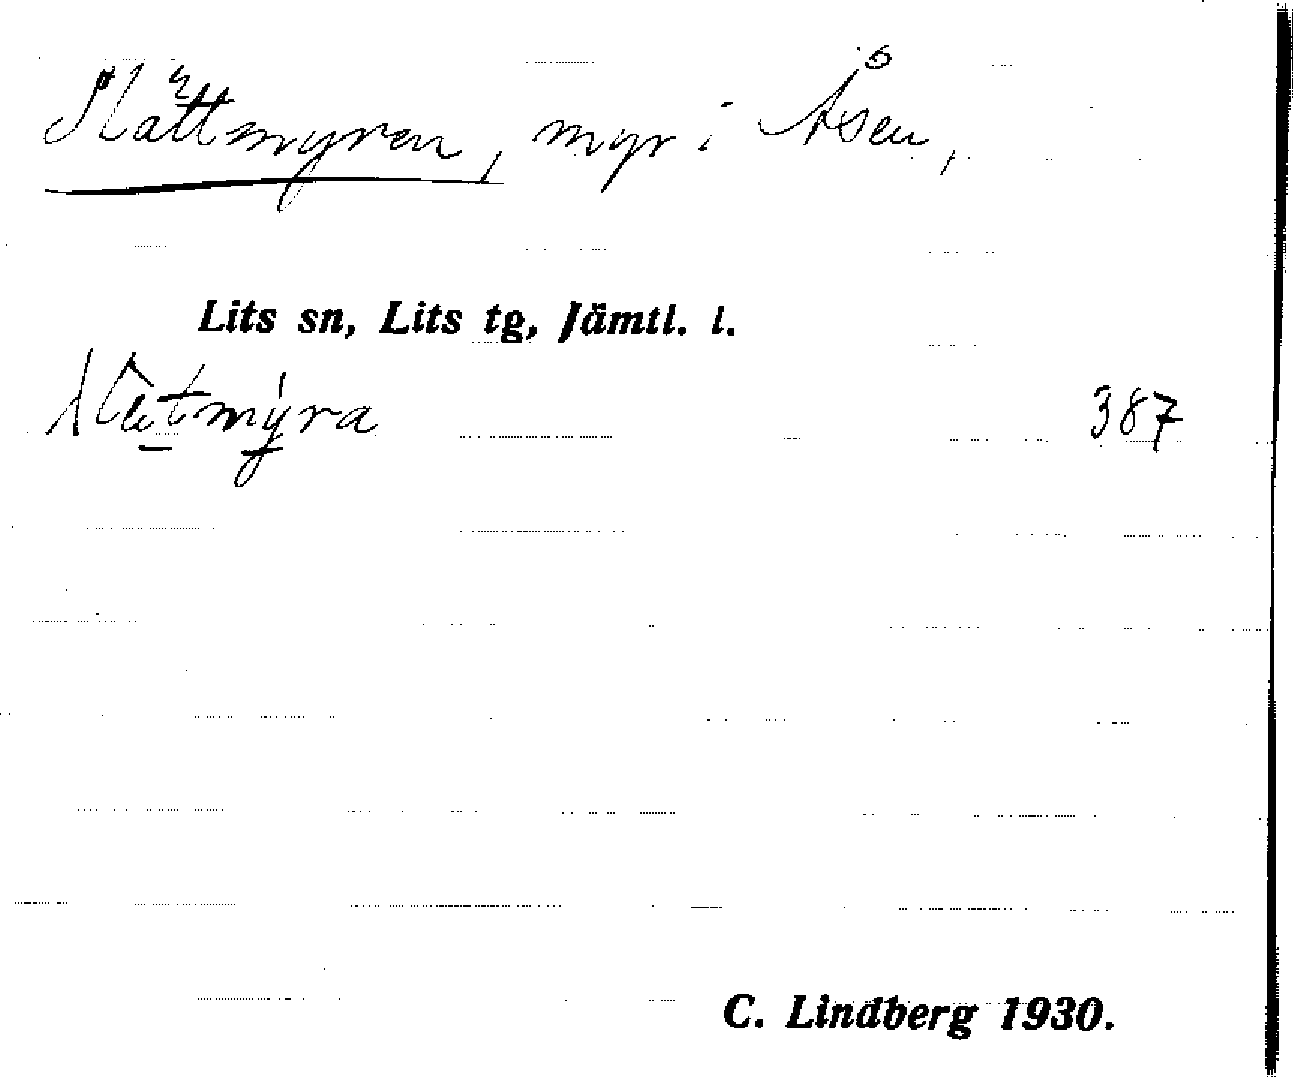 Slättmyren, myr i Åsen,
Lits sn, Lits tg, Jämtl. l.
387
C. Lindberg 1930.